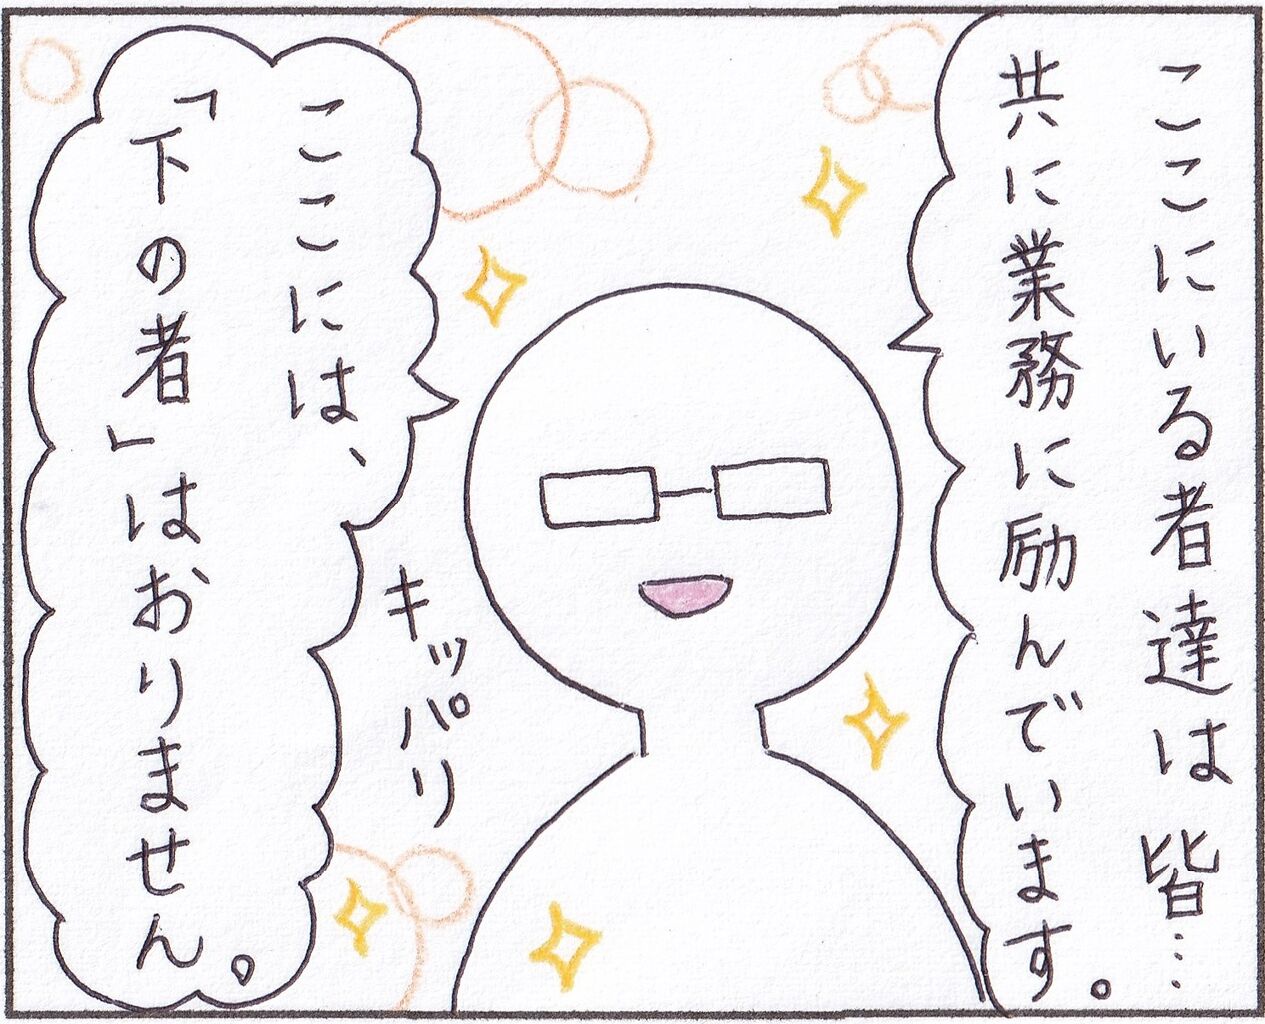 ここにいる者達は皆…
共に業務に励んでいます。
ここには、
「下の者」はおりません。
キッパリ